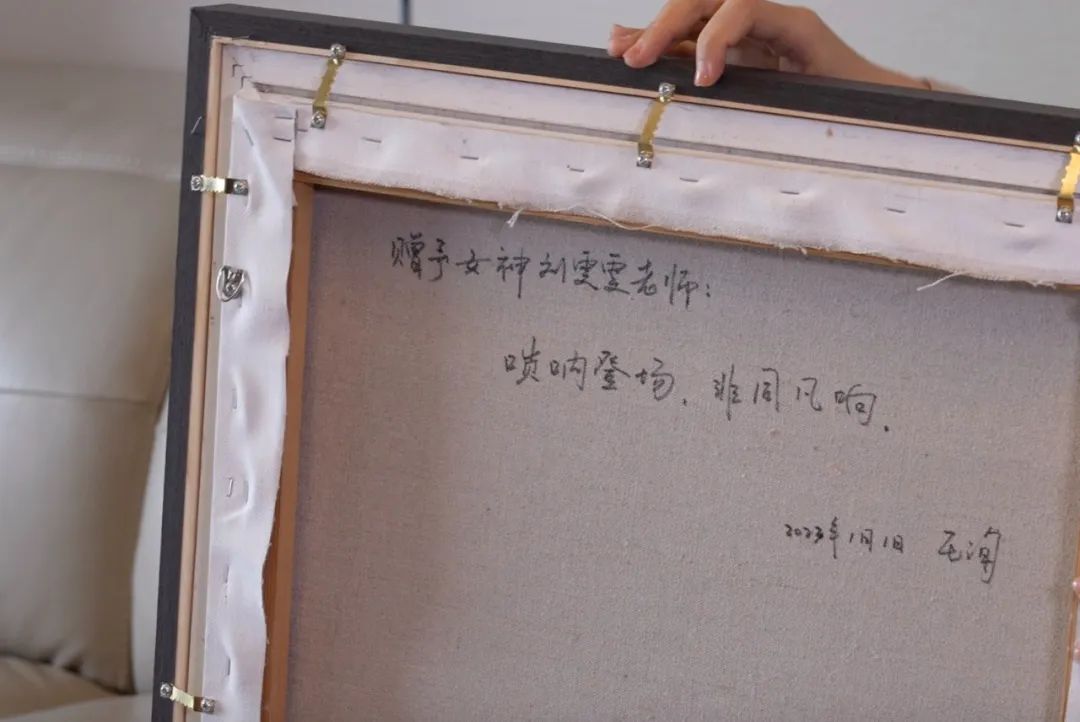 赠予女神刘雯雯老师:
唢呐登场，非同凡响.
2023年1月1日